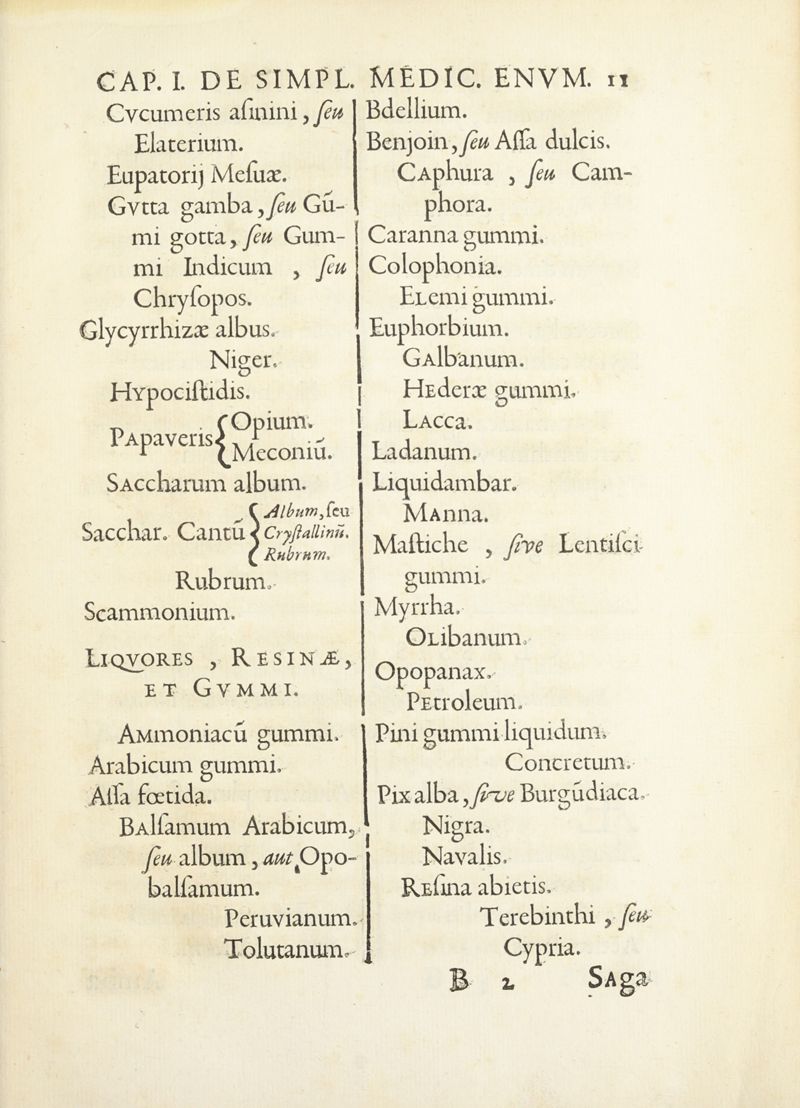 CAP. I. DE SIMPL. MEDIC. ENVM. 11
Cvcumeris aſinini, ſeu
Elaterium.
Eupatorij Meſuæ.
Gvtta gamba, ſeu Gū-
mi gotta, ſeu Gum-
mi Indicum , ſeu
Chryſopos.
Glycyrrhizæ albus.
Niger.
HYpociſtidis.
PApaveris { Opium.
Meconiū.
SAccharum album.
Sacchar. Cantū { Album, ſeu
Cryſtallinū.
Rubrum.
Rubrum.
Scammonium.
LIQVORES , RESINÆ,
ET GVMMI.
AMmoniacū gummi.
Arabicum gummi.
Aſſa fœtida.
BAlſamum Arabicum,
ſeu album, aut Opo-
balſamum.
Peruvianum.
Tolutanum.
Bdellium.
Benjoin, ſeu Aſſa dulcis.
CAphura , ſeu Cam-
phora.
Caranna gummi.
Colophonia.
ELemi gummi.
Euphorbium.
GAlbanum.
HEderæ gummi.
LAcca.
Ladanum.
Liquidambar.
MAnna.
Maſtiche , ſive Lentiſci
gummi.
Myrrha.
OLibanum.
Opopanax.
PEtroleum.
Pini gummi liquidum.
Concretum.
Pix alba, ſive Burgūdiaca.
Nigra.
Navalis.
REſina abietis.
Terebinthi , ſeu
Cypria.
B 2 SAga